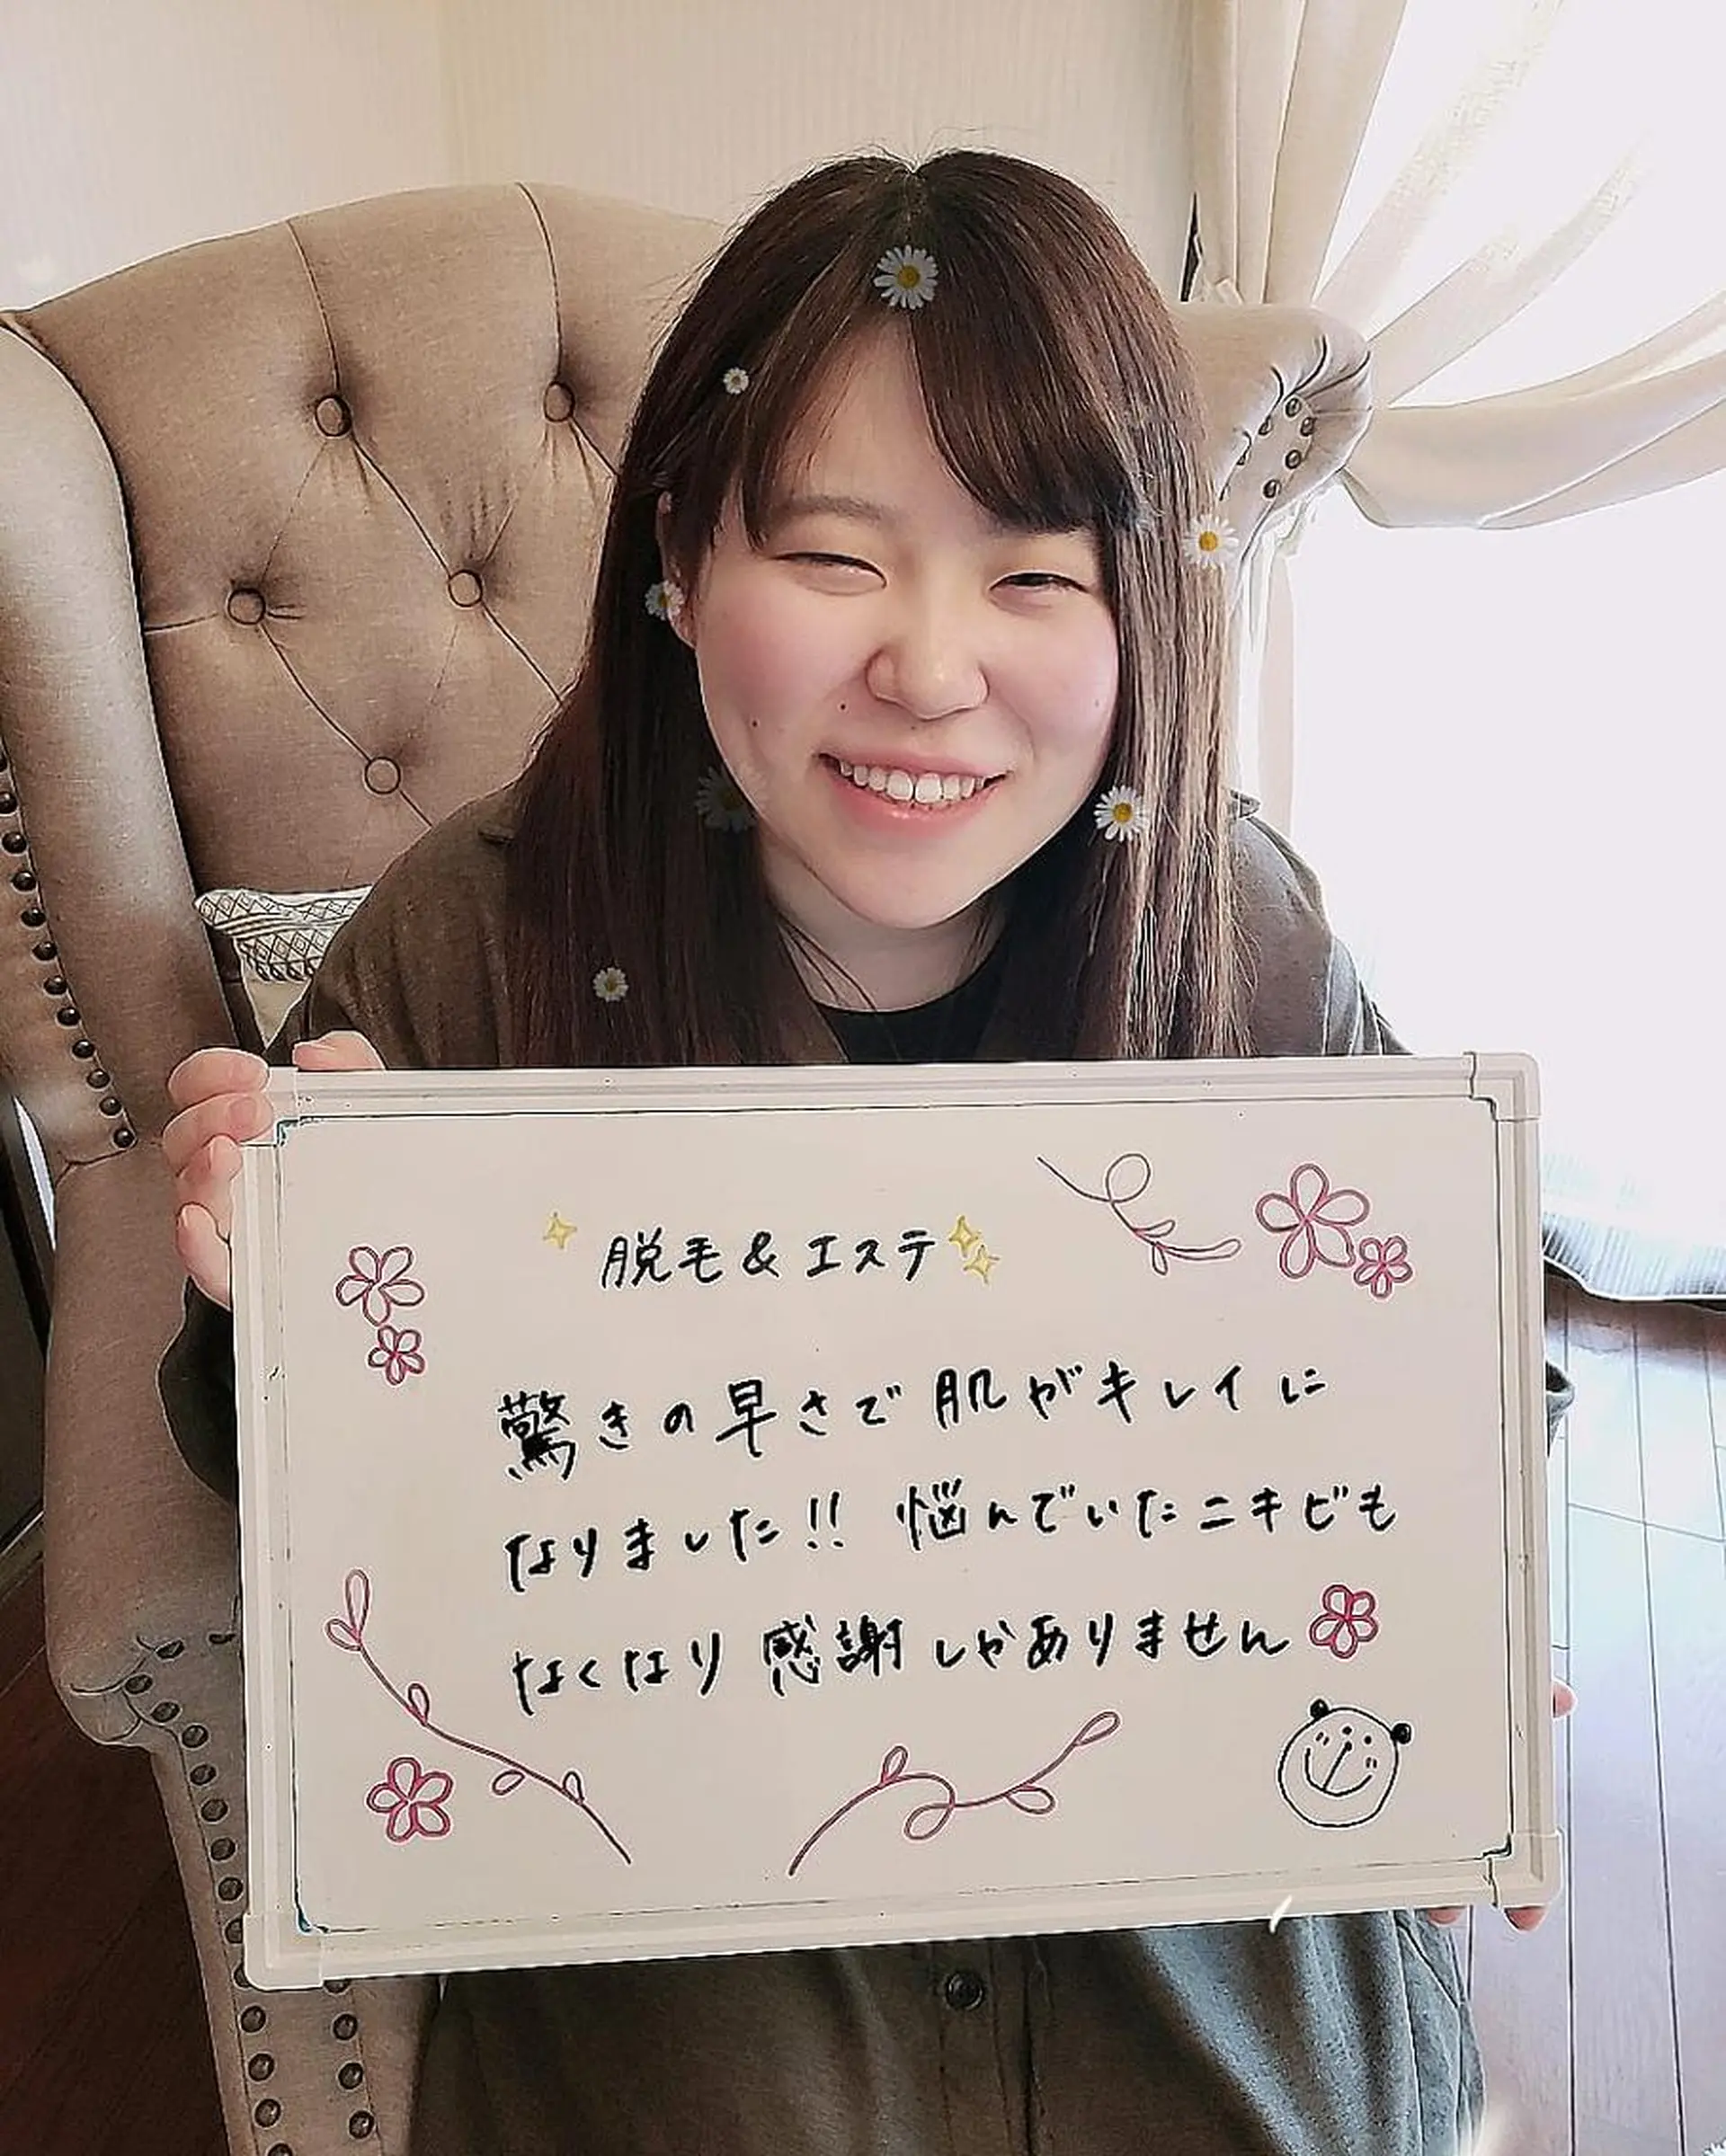 脱毛&エステ
驚きの早さで肌がキレイに
なりました!! 悩んでいたニキビも
なくなり感謝しかありません